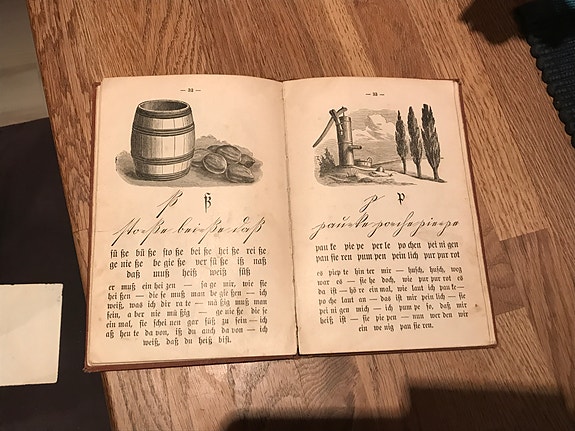 — 32 —
ß ß
stoße beiße daß
fü ße bü ße sto ße bei ße hei ße rei ße
ge nie ße be gie ße ver fü ße iß naß
daß muß heiß weiß süß
er muß ein hei zen — ſa ge mir, wie ſie
hei ßen — die ſe muß man be gie ßen — ich
weiß, was ich dir ra te — mä ßig muß man
ſein, a ber nie mü ßig — ge nie ße die ſe
ein mal, ſie ſchei nen gar ſüß zu ſein — ich
aß heu te da von, iß du auch da von — ich
weiß, daß du heiß biſt.
— 33 —
p p
pau ke pie pe per le po chen pei ni gen
pau ſie ren pum pen pein lich pur pur rot
es piep te hin ter mir — huſch, huſch, weg
war es — ſie he doch, wie pur pur rot es
da iſt — hö re ein mal, wie laut ich pau ke —
po che laut an — das iſt mir pein lich — ſie
pei ni gen mich — ich pum pe ſo, daß mir
heiß iſt — ſie pie pen — nun wer den wir
ein we nig pau ſie ren.